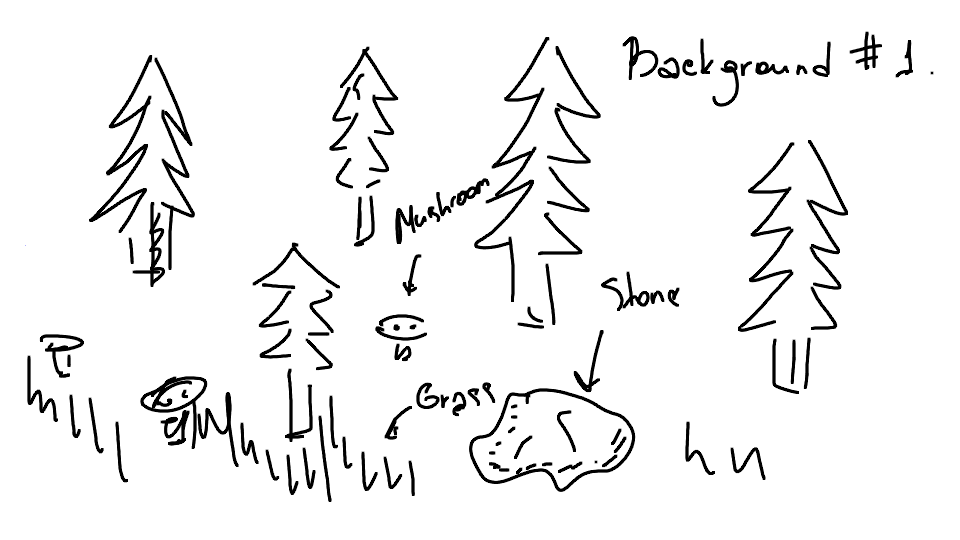 Background #1.
Mushroom
Stone
Grass